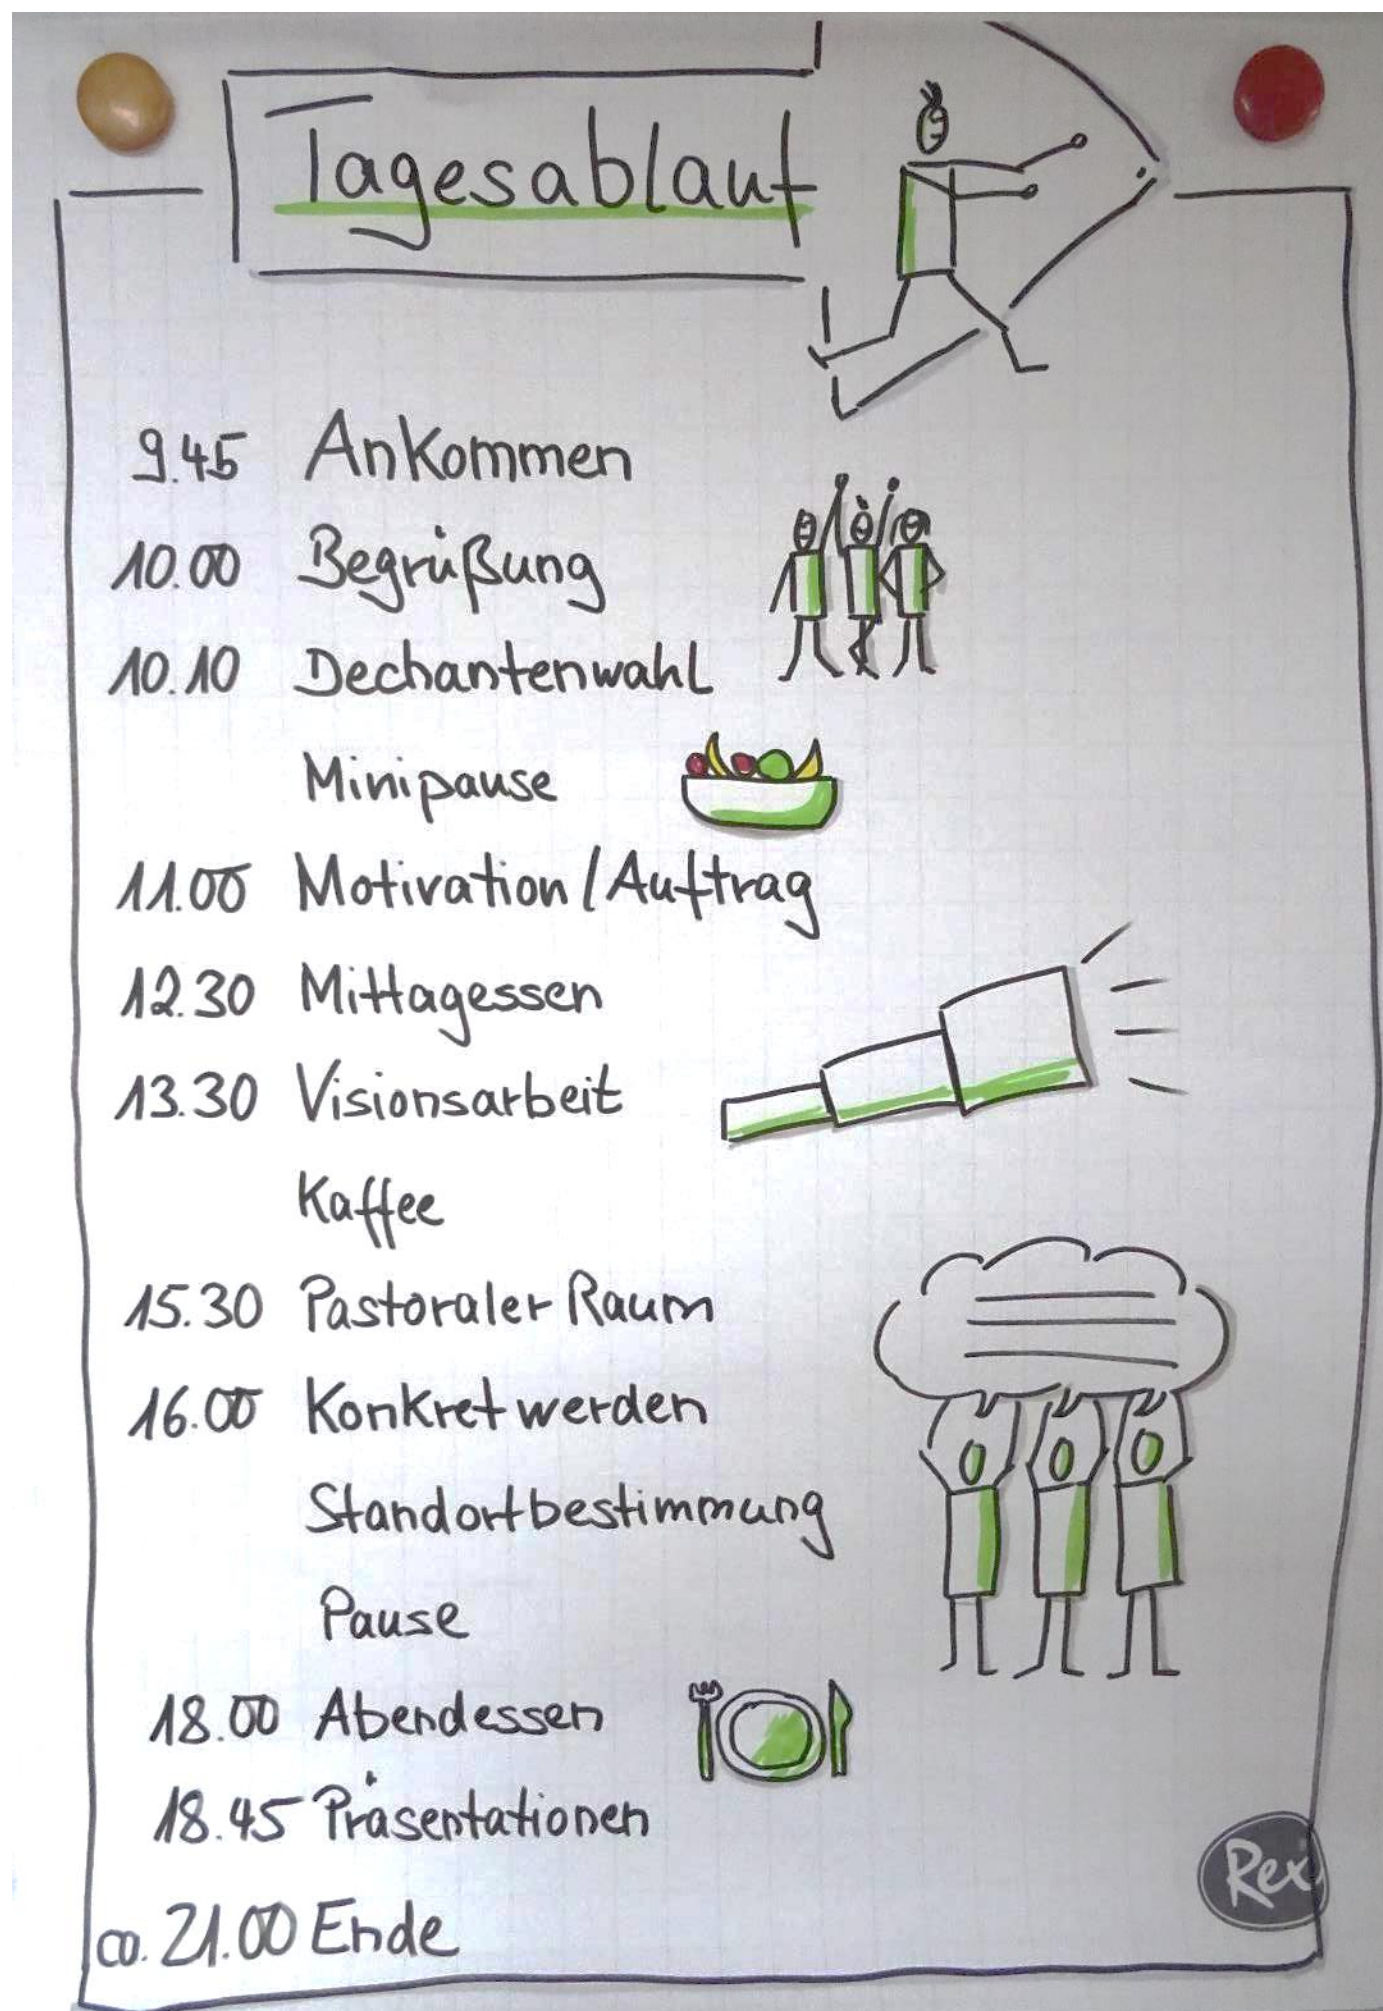 Tagesablauf
9.45 Ankommen
10.00 Begrüßung
10.10 Dechantenwahl
Minipause
11.00 Motivation/Auftrag
12.30 Mittagessen
13.30 Visionsarbeit
Kaffee
15.30 Pastoraler Raum
16.00 Konkret werden
Standortbestimmung
Pause
18.00 Abendessen
18.45 Präsentationen
ca. 21.00 Ende
Rex